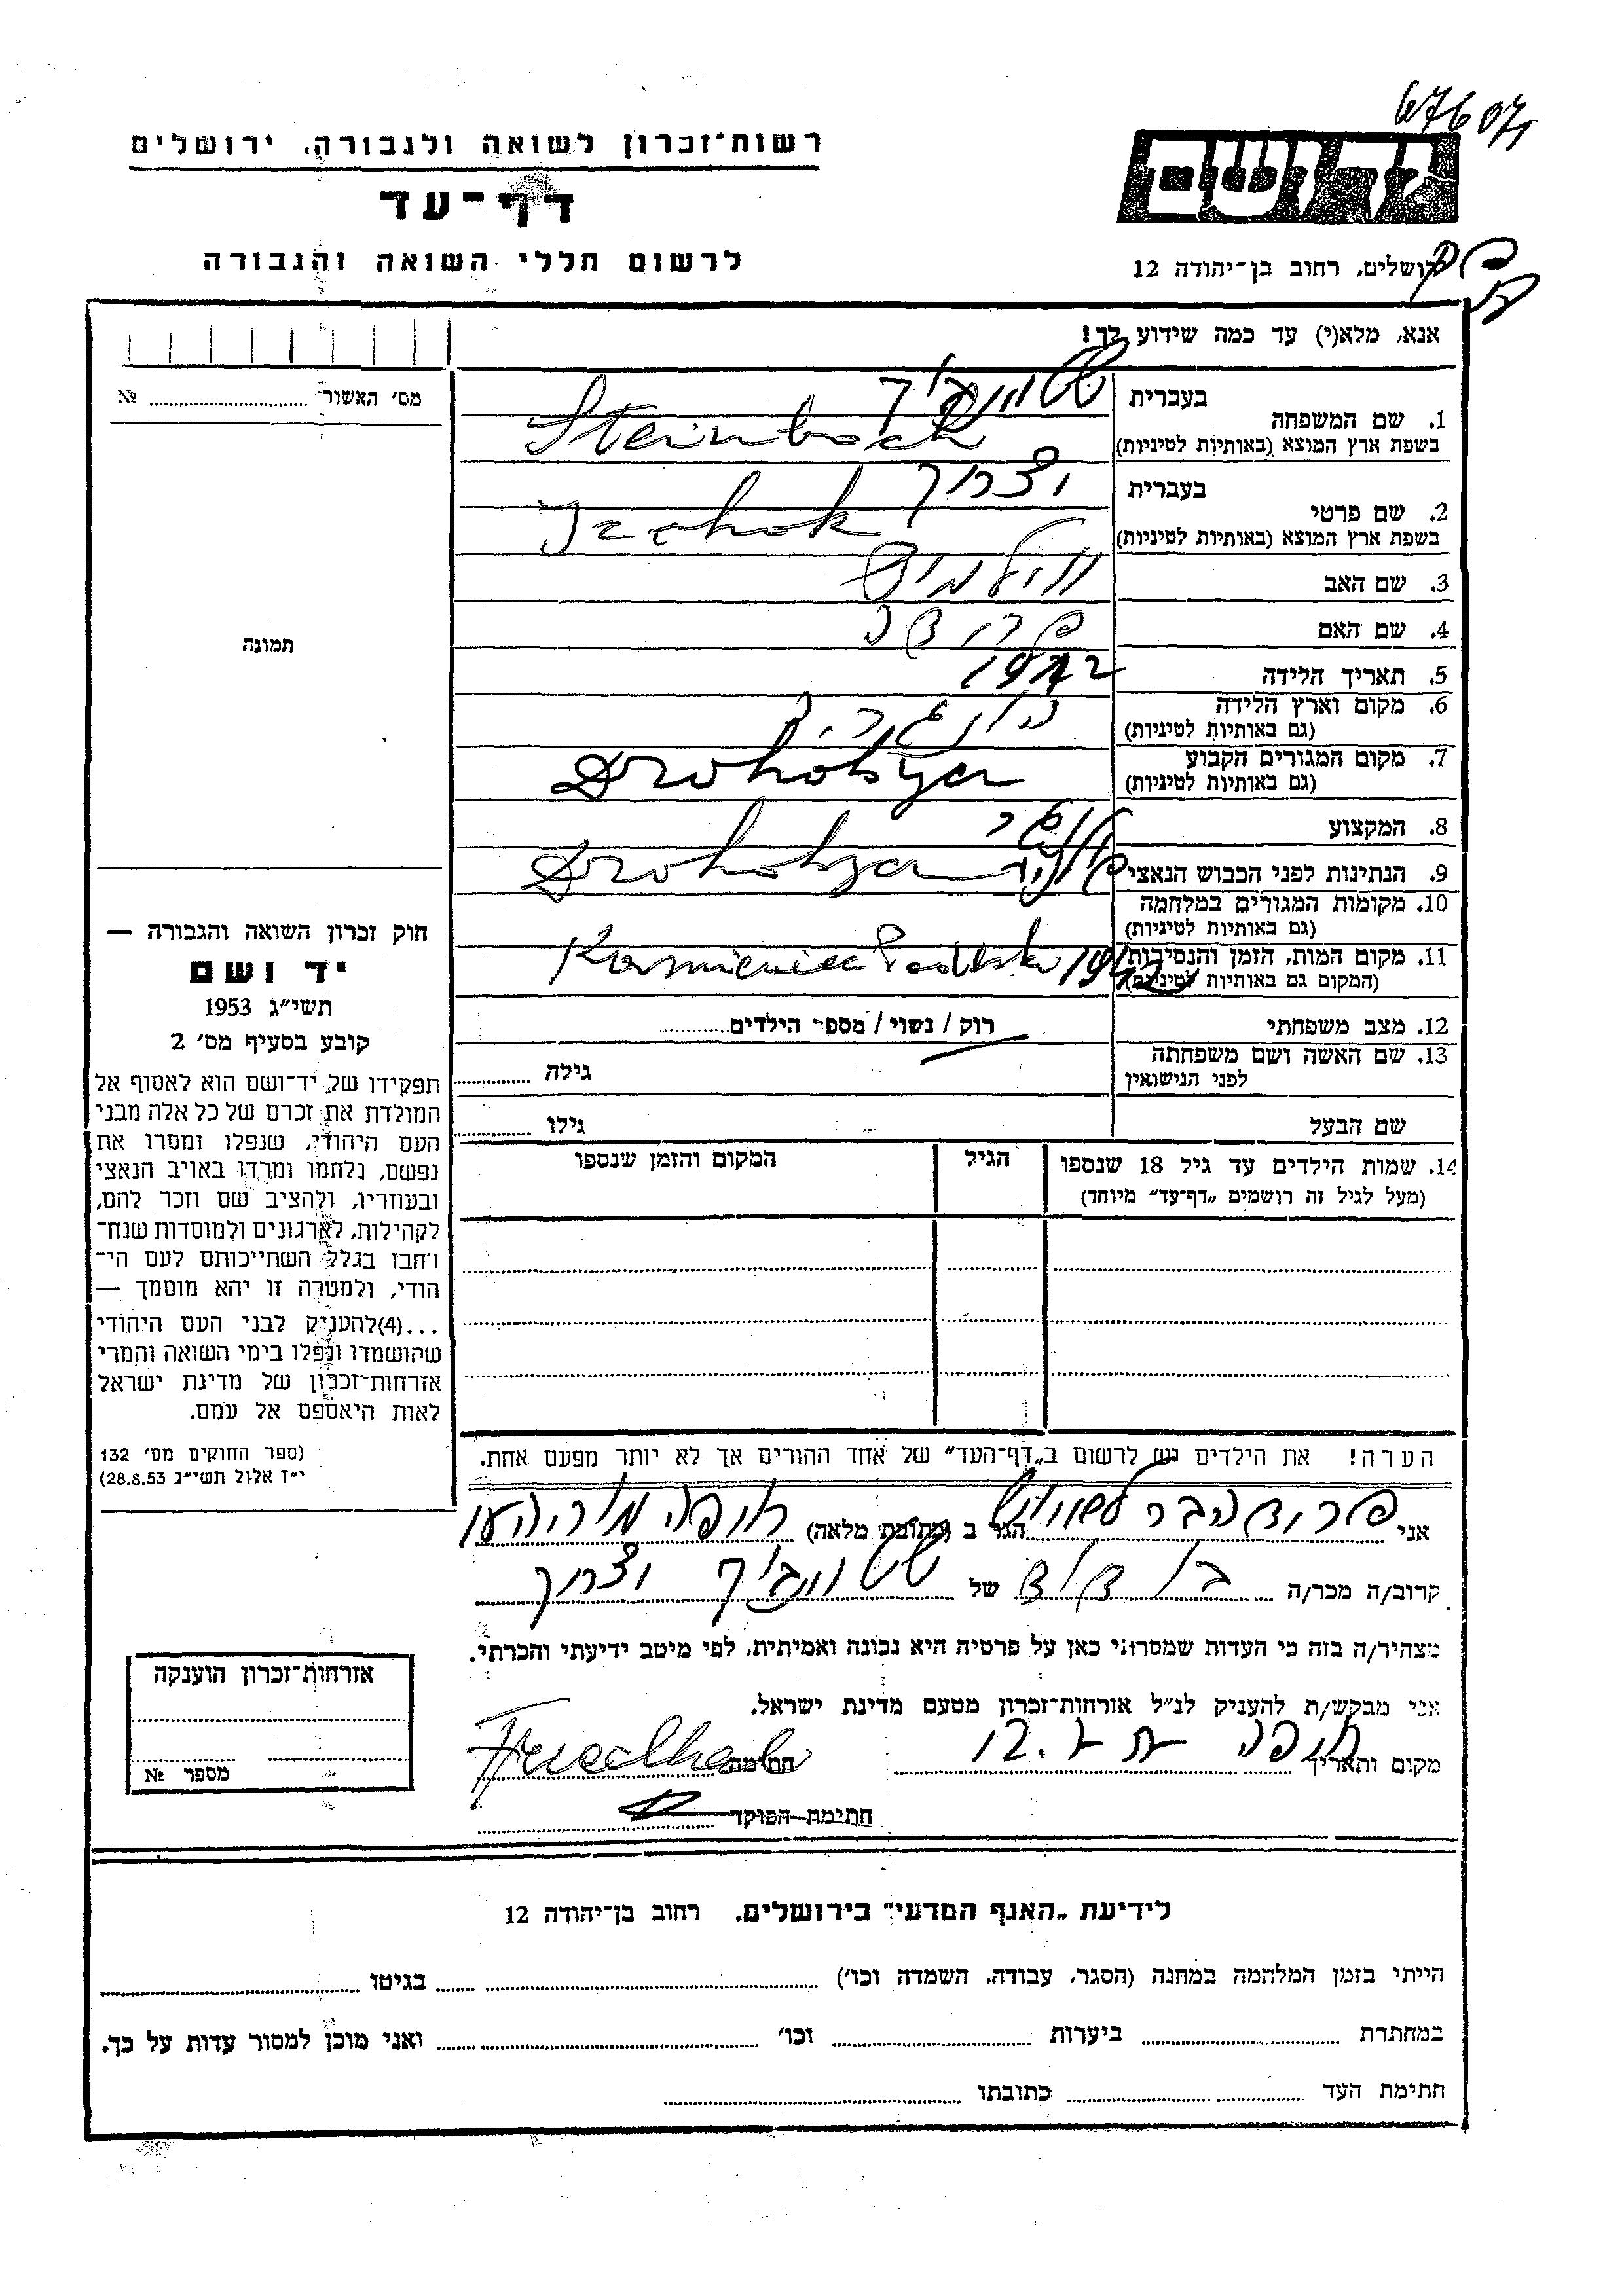 67607
רשות־זכרון לשואה ולגבורה, ירושלים
דף־עד
לרשום חללי השואה והגבורה
ירושלים, רחוב בן־יהודה 12
אנא, מלא(י) עד כמה שידוע לך!
מס' האשור № 
1. שם המשפחה
בעברית
בשפת ארץ המוצא (באותיות לטיניות)
Steinbock
2. שם פרטי
בעברית
בשפת ארץ המוצא (באותיות לטיניות)
Izchok
3. שם האב
4. שם האם
5. תאריך הלידה
6. מקום וארץ הלידה
(גם באותיות לטיניות)
7. מקום המגורים הקבוע
(גם באותיות לטיניות)
Drohobycz
8. המקצוע
9. הנתינות לפני הכבוש הנאצי
10. מקומות המגורים במלחמה
(גם באותיות לטיניות)
Drohobycz
11. מקום המות, הזמן והנסיבות
(המקום גם באותיות לטיניות)
1942
12. מצב משפחתי
רוק / נשוי / מספר הילדים
13. שם האשה ושם משפחתה
לפני הנישואין
גילה
שם הבעל
גילו
14. שמות הילדים עד גיל 18 שנספו
(מעל לגיל זה רושמים „דף־עד" מיוחד)
הגיל
המקום והזמן שנספו
תמונה
חוק זכרון השואה והגבורה —
יד ושם
תשי"ג 1953
קובע בסעיף מס' 2
תפקידו של יד־ושם הוא לאסוף אל
המולדת את זכרם של כל אלה מבני
העם היהודי, שנפלו ומסרו את
נפשם, נלחמו ומרדו באויב הנאצי
ובעוזריו, ולהציב שם וזכר להם,
לקהילות, לארגונים ולמוסדות שנח־
רבו בגלל השתייכותם לעם הי־
הודי, ולמטרה זו יהא מוסמך —
...(4)להעניק לבני העם היהודי
שהושמדו ונפלו בימי השואה והמרי
אזרחות־זכרון של מדינת ישראל
לאות היאספם אל עמם.
(ספר החוקים מס' 132
י"ז אלול תשי"ג 28.8.53)
הערה! את הילדים יש לרשום ב„דף־העד" של אחד ההורים אך לא יותר מפעם אחת.
אני
הגר ב (כתובת מלאה) חיפה
קרוב/ה מכר/ה בן דוד של
מצהיר/ה בזה כי העדות שמסרתי כאן על פרטיה היא נכונה ואמיתית, לפי מיטב ידיעתי והכרתי.
אני מבקש/ת להעניק לנ"ל אזרחות־זכרון מטעם מדינת ישראל.
מקום ותאריך חיפה
חתימה
חתימת הפוקד
אזרחות־זכרון הוענקה
מספר №
לידיעת „האגף המדעי" בירושלים, רחוב בן־יהודה 12
הייתי בזמן המלחמה במחנה (הסגר, עבודה, השמדה וכו') בגיטו
במחתרת ביערות וכו' ואני מוכן למסור עדות על כך.
חתימת העד כתובתו